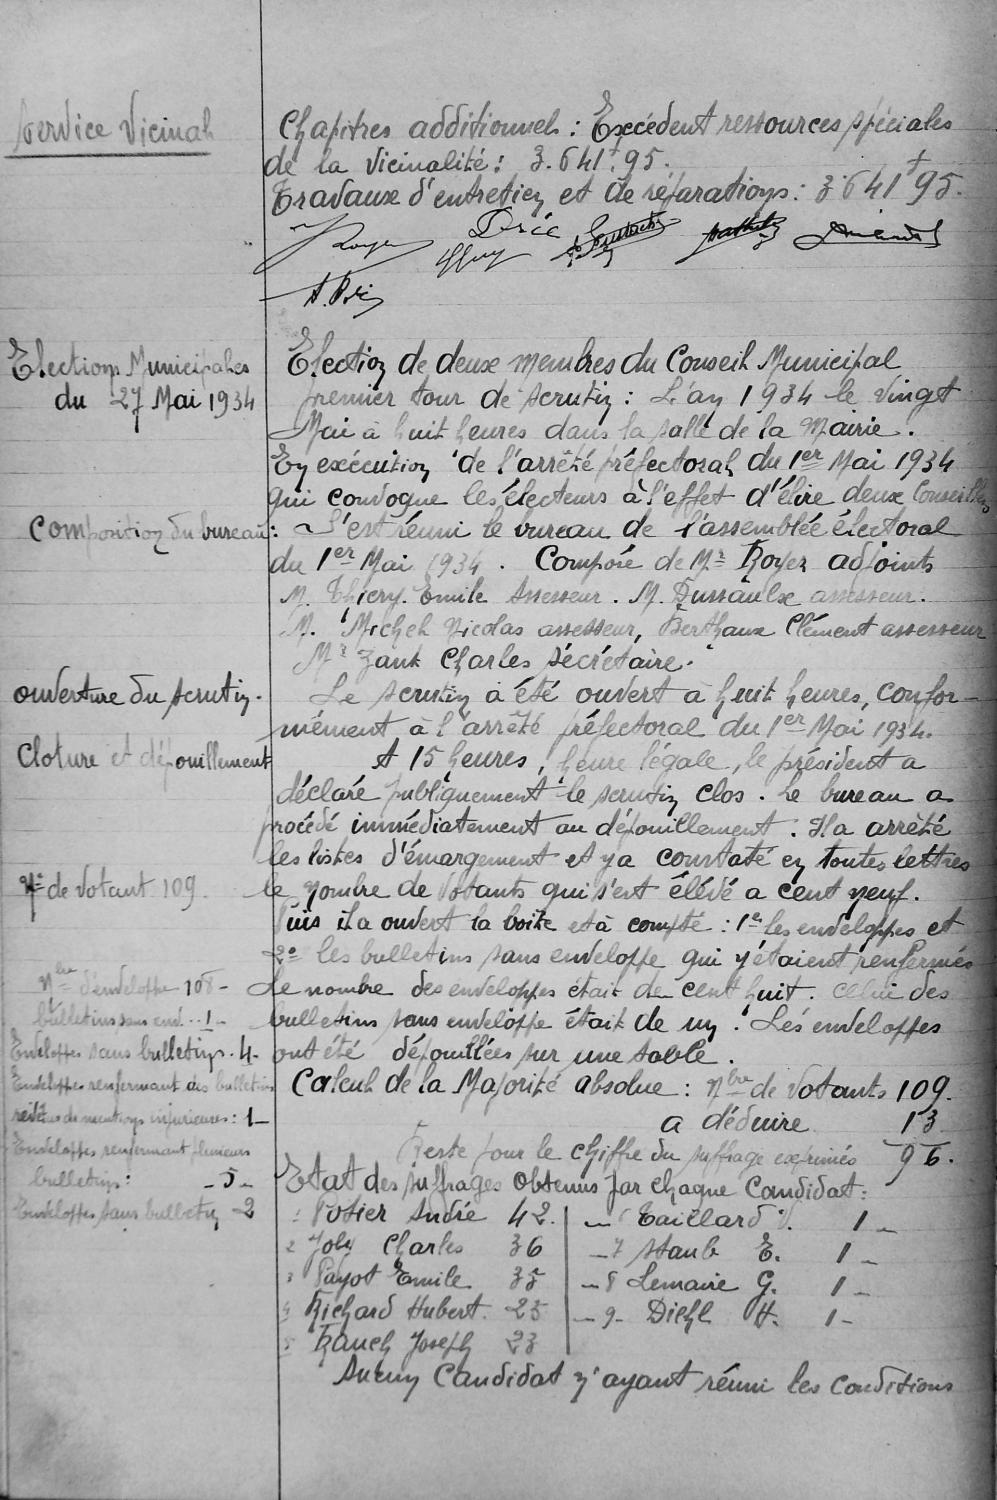 Service Vicinal
Chapitres additionnels : Excédent ressources spéciales
de la vicinalité : 3.641f95.
Travaux d'entretien et de réparations : 3.641f95.
Elections Municipales
du 27 Mai 1934
Election de deux membres du Conseil Municipal
premier tour de scrutin : L'an 1934 le Vingt
Mai à huit heures dans la salle de la Mairie.
En exécution de l'arrêté préfectoral du 1er Mai 1934
qui convoque les électeurs à l'effet d'élire deux Conseillers
Composition du bureau :
S'est réuni le bureau de l'assemblée électoral
du 1er Mai 1934. Composé de Mr Royer adjoints
M. Thiery Emile Assesseur. M. Dussaulx assesseur.
M. Michel Nicolas assesseur, Berthaux Clément assesseur
Mr Zank Charles Sécrétaire.
ouverture du scrutin.
Le scrutin a été ouvert à huit heures, confor-
mément à l'arrêté préfectoral du 1er Mai 1934.
Cloture et dépouillement
A 15 heures, heure légale, le président a
déclaré publiquement le scrutin clos. Le bureau a
procédé immédiatement au dépouillement. Il a arrêté
les listes d'émargement et y a constaté en toutes lettres
Nre de Votant 109.
le nombre de Votants qui s'est élévé a cent neuf.
Puis il a ouvert la boite et à compté : 1e les enveloppes et
2e les bulletins sans enveloppe qui y étaient renfermés
Nbre d'enveloppe 108 -
Le nombre des enveloppes était de cent huit. Celui des
bulletins sans env... 1 -
bulletins sans enveloppe était de un. Les enveloppes
Enveloppes sans bulletins. 4 -
ont été dépouillées sur une table.
Enveloppes renfermant des bulletins
Calcul de la Majorité absolue : Nbre de Votants 109.
de mentions injurieuses : 1 -
a déduire 13
Enveloppes renfermant plusieurs
Reste pour le chiffre du suffrage exprimés 96.
bulletins : - 5 -
Etat des suffrages obtenus par chaque Candidat :
Enveloppes sans bulletin 2
1 Potier André 42. - 6 Taillard V. 1 -
2 Joly Charles 36 - 7 Staub E. 1 -
3 Payot Emile 35 - 8 Lemaire G. 1 -
4 Richard Hubert. 25 - 9 - Diehl H. 1 -
5 Rauch Joseph 23
Aucun Candidat n'ayant réuni les conditions